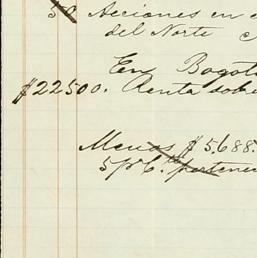 50 Acciones en
del Norte
En Bogot
$22500. Renta sobr
Menos $5.688.
5 p% pertene